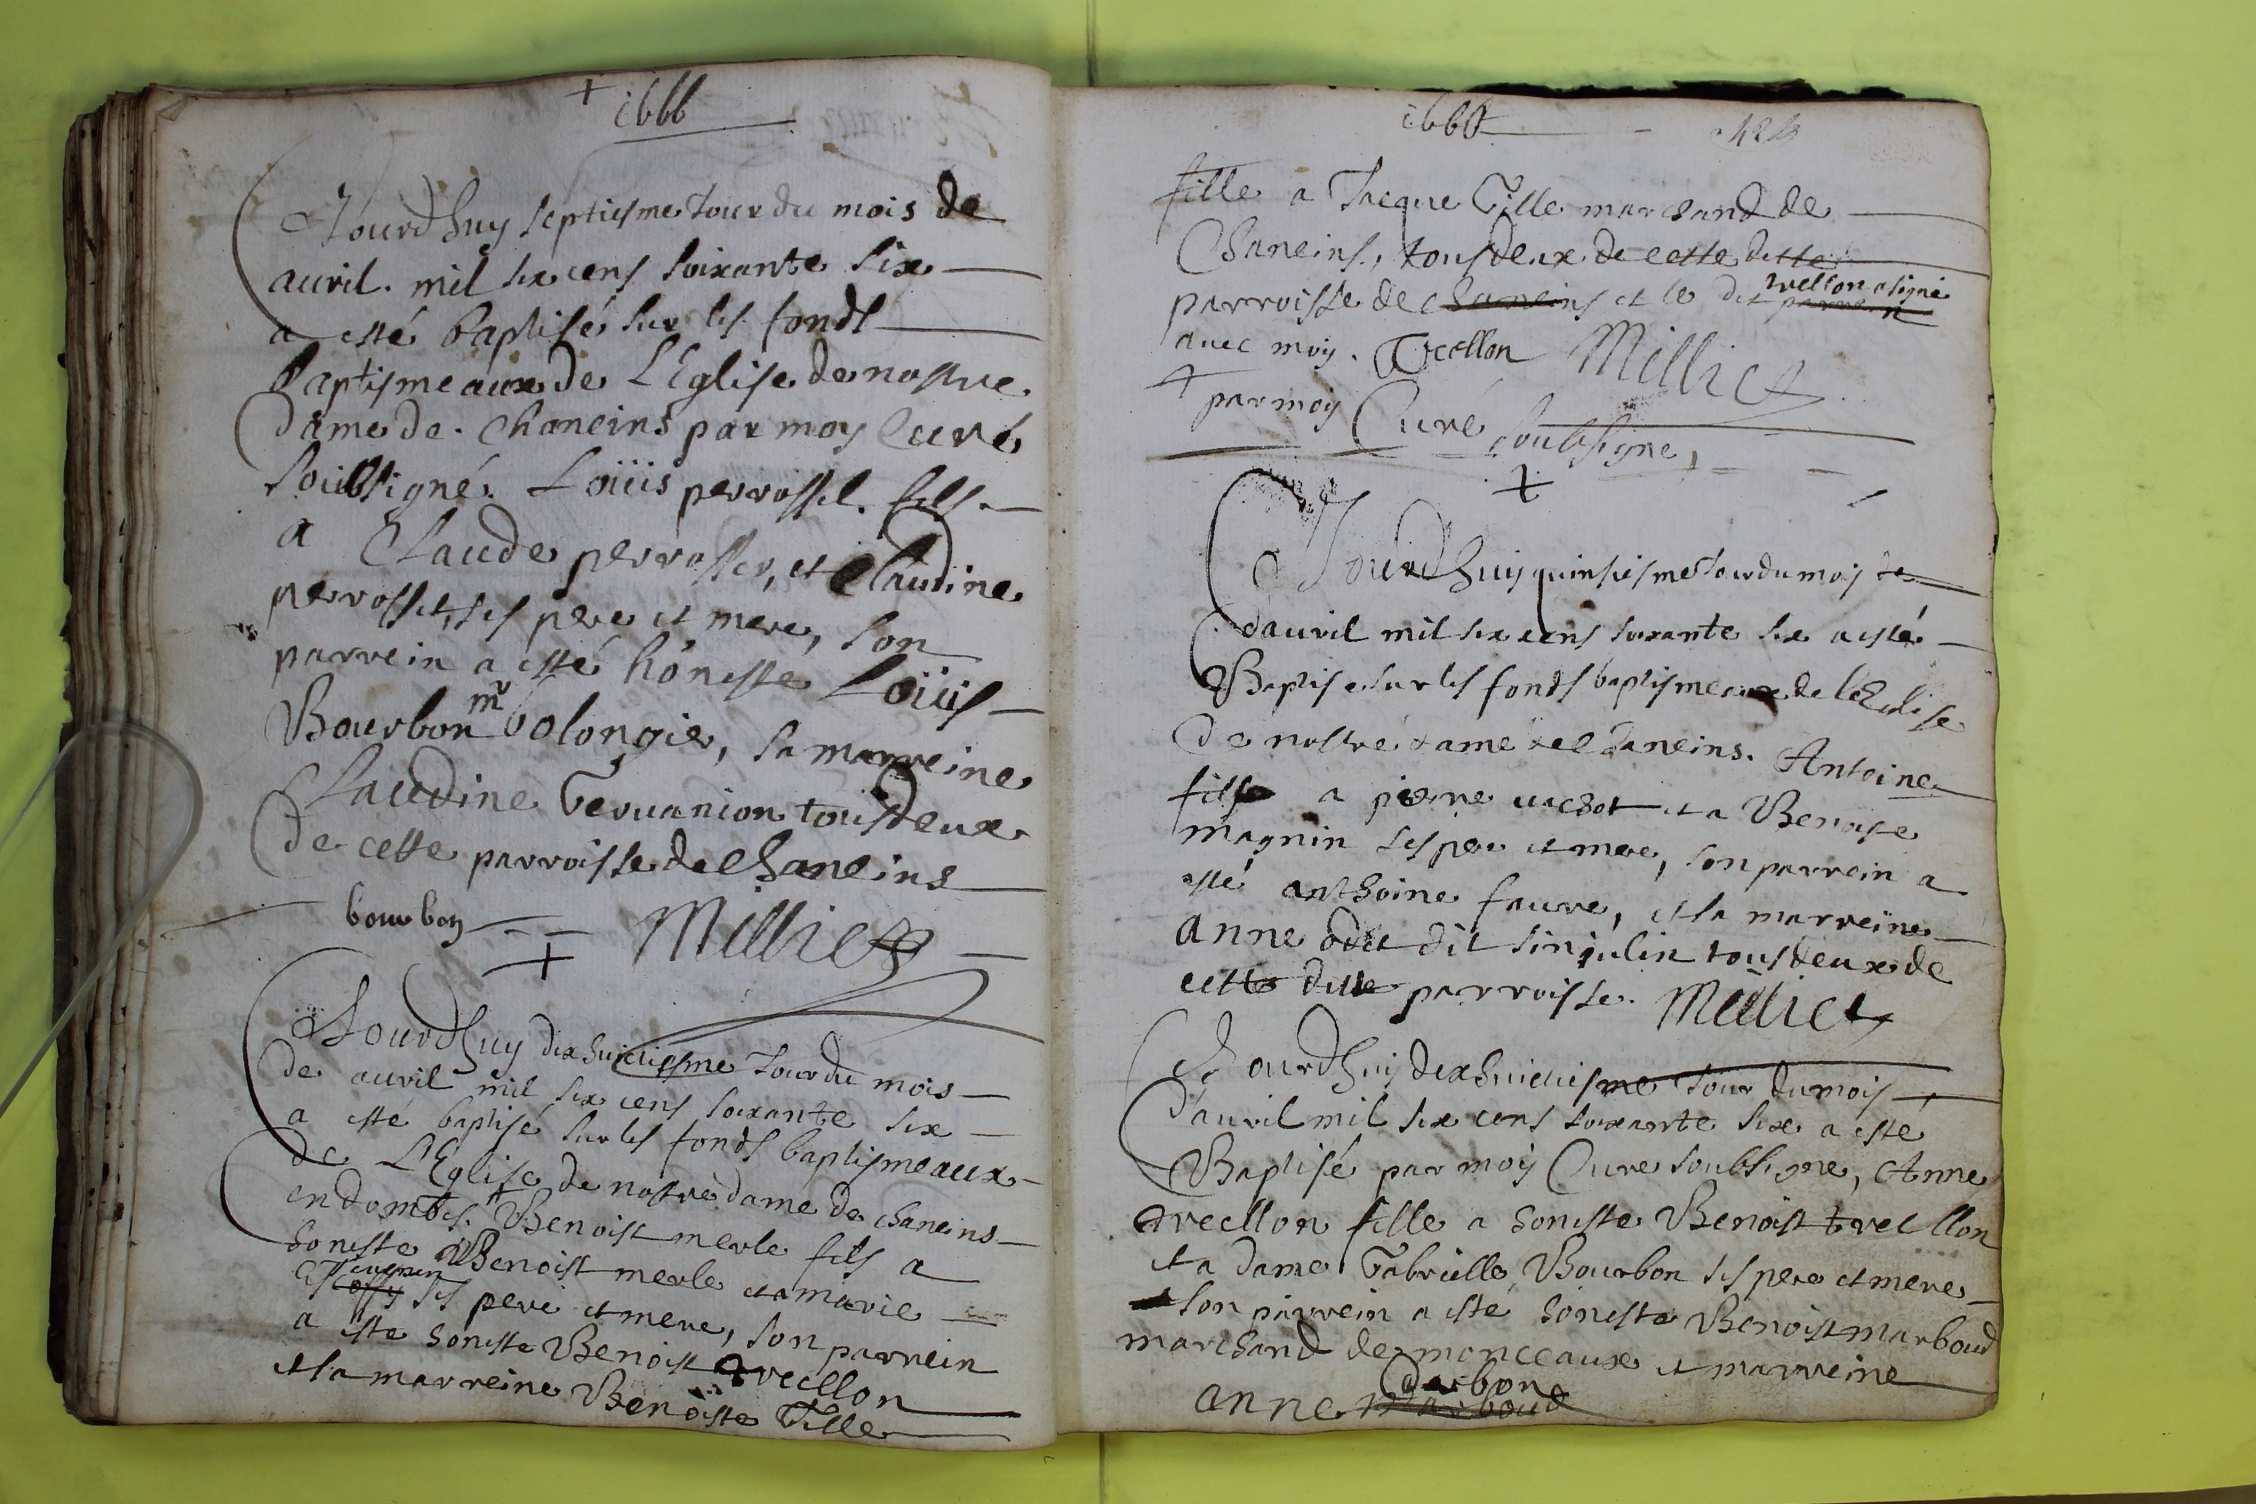 + 1666
Jourdhuy septiesme Jour du mois de
auril. mil six cens soixante six
a esté baptisé sur les fonds
baptismeaux de L'Eglise de nostre
dame de. Chaneins par moy Curé
soubsigné. Loüis perrosset. fils.
a Claude perrosset, et Claudine
perrosset, ses pere et mere, son
parrein a esté honeste Loüis
Bourbon mr bolongier, sa marreine
Claudine Geruanion tous deux
de cette parroisse de Chaneins
bourbon Milliet
+
Jourdhuy dixhuictiesme Jour du mois
de auril mil six cens soixante six
a esté baptisé sur les fonds baptismeaux
de L'Eglise de nostre dame de chaneins
en dombes. + Benoist merle fils a
honeste Benoist merle et a marie
ses pere et mere, son parrein
a esté honeste Benoist trecllon
et sa marreine Benoiste Tille
1666
fille a Jacque Tille marchand de
Chaneins, tous deux de cette ditte
parroisse de chaneins et le dit parrein trellon a signé
auec moy. Trecllon Milliet
+ par moy Curé soubsigne,
+
Jourdhuy quinsiesme Jour du mois de
dauril mil six cens soixante six a esté
Baptise sur les fonds baptismeaux de leglise
de nostre dame de chaneins. Antoine
fils a pierre uachot et a Benoiste
magnin ses pere et mere, son parrein a
esté anthoine faure, et sa marreine
anne odet dit sinjulin tous deux de
cette ditte parroisse. Milliet
Jourdhuy dixhuictiesme Jour du mois
dauril mil six cens soixante six a esté
Baptisé par moy Cure soubsigne, Anne
trecllon fille a honeste Benoist trecllon
et a dame Gabrielle Bourbon ses pere et mere
son parrein a esté honeste Benoist marboud
marchand de monceaux et marreine
anne marboud darbon